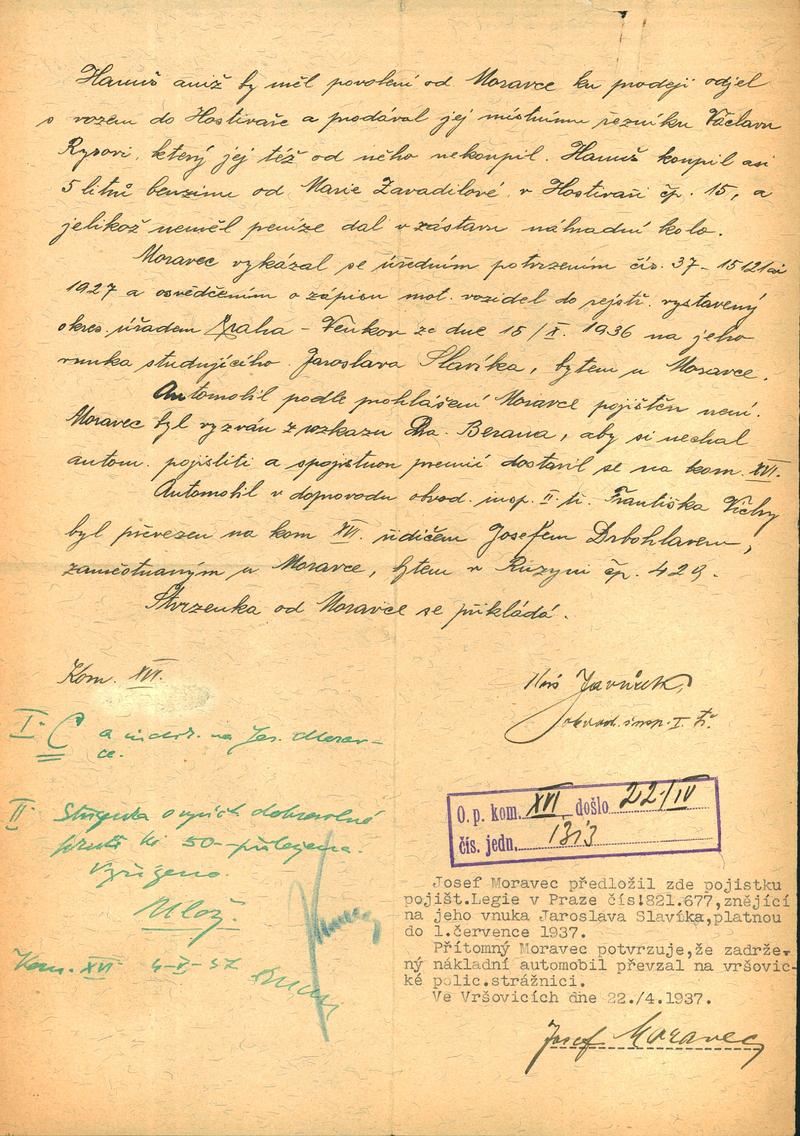 Hanuš aniž by měl povolení od Moravce ku prodeji odjel
s vozem do Hostivaře a prodával jej místnímu řezníku Václavu
Rysovi, který jej též od něho nekoupil. Hanuš koupil asi
5 litrů benzinu od Marie Zavadilové v Hostivaři čp. 15, a
jelikož neměl peníze dal v zástavu náhradní kolo.
Moravec vykázal se úředním potvrzením čís. 37-15121ai
1927 a osvědčením o zápisu mot. vozidel do rejstř. vystavený
okres. úřadem Praha - Venkov ze dne 15/X. 1936 na jeho
vnuka studujícího Jaroslava Slavíka, bytem u Moravce.
Automobil podle prohlášení Moravce pojištěn není.
Moravec byl vyzván z vzkazu Dra. Berana, aby si nechal
autom. pojistiti a s pojistnou premií dostavil se na kom. XVI.
Automobil v doprovodu obvod. insp. II. tř. Františka Víchy
byl převezen na kom XVI. řidičem Josefem Drbohlavem,
zaměstnaným u Moravce, bytem v Ruzyni čp. 429.
Stvrzenka od Moravce se přikládá.
Kom. XVI.
Javůrek
obvod. insp. I. tř.
I. C a na Jos. Morav-
ce.
II dobrovolné
50-
Vyřízeno.
Kom. XVI
O. p. kom. XVI došlo 22/IV
čís. jedn. 1313
Josef Moravec předložil zde pojistku
pojišt.Legie v Praze čís!821.677,znějící
na jeho vnuka Jaroslava Slavíka,platnou
do 1.července 1937.
Přítomný Moravec potvrzuje,že zadrže-
ný nákladní automobil převzal na vršovic-
ké polic.strážnici.
Ve Vršovicích dne 22./4.1937.
Josef Moravec